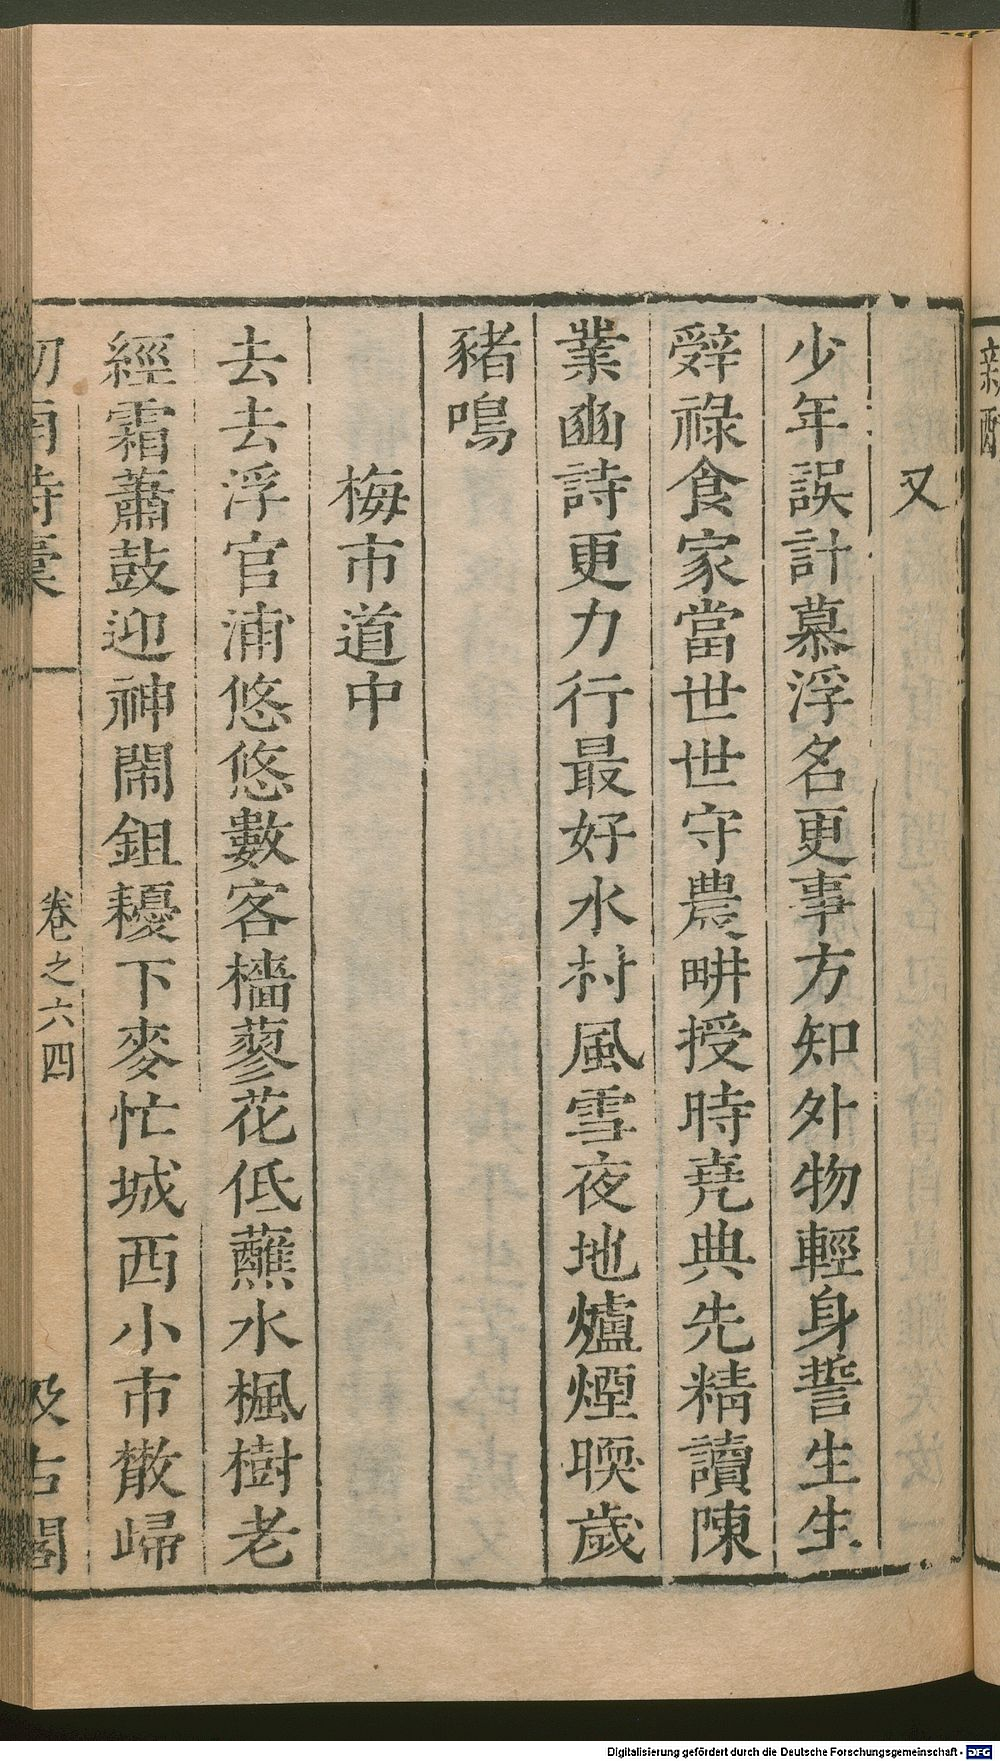 又
少年誤計慕浮名更事方知外物輕身誓生生
辤祿食家當世世守農畊授時堯典先精讀陳
業豳詩更力行最好水村風雪夜地爐煙暝歲
豬鳴
梅市道中
去去浮官浦悠悠數客檣蓼花低蘸水楓樹老
經霜蕭鼓迎神閙鉏耰下麥忙城西小市散歸
卷之六四
汲古閣
Digitalisierung gefördert durch die Deutsche Forschungsgemeinschaft - DFG